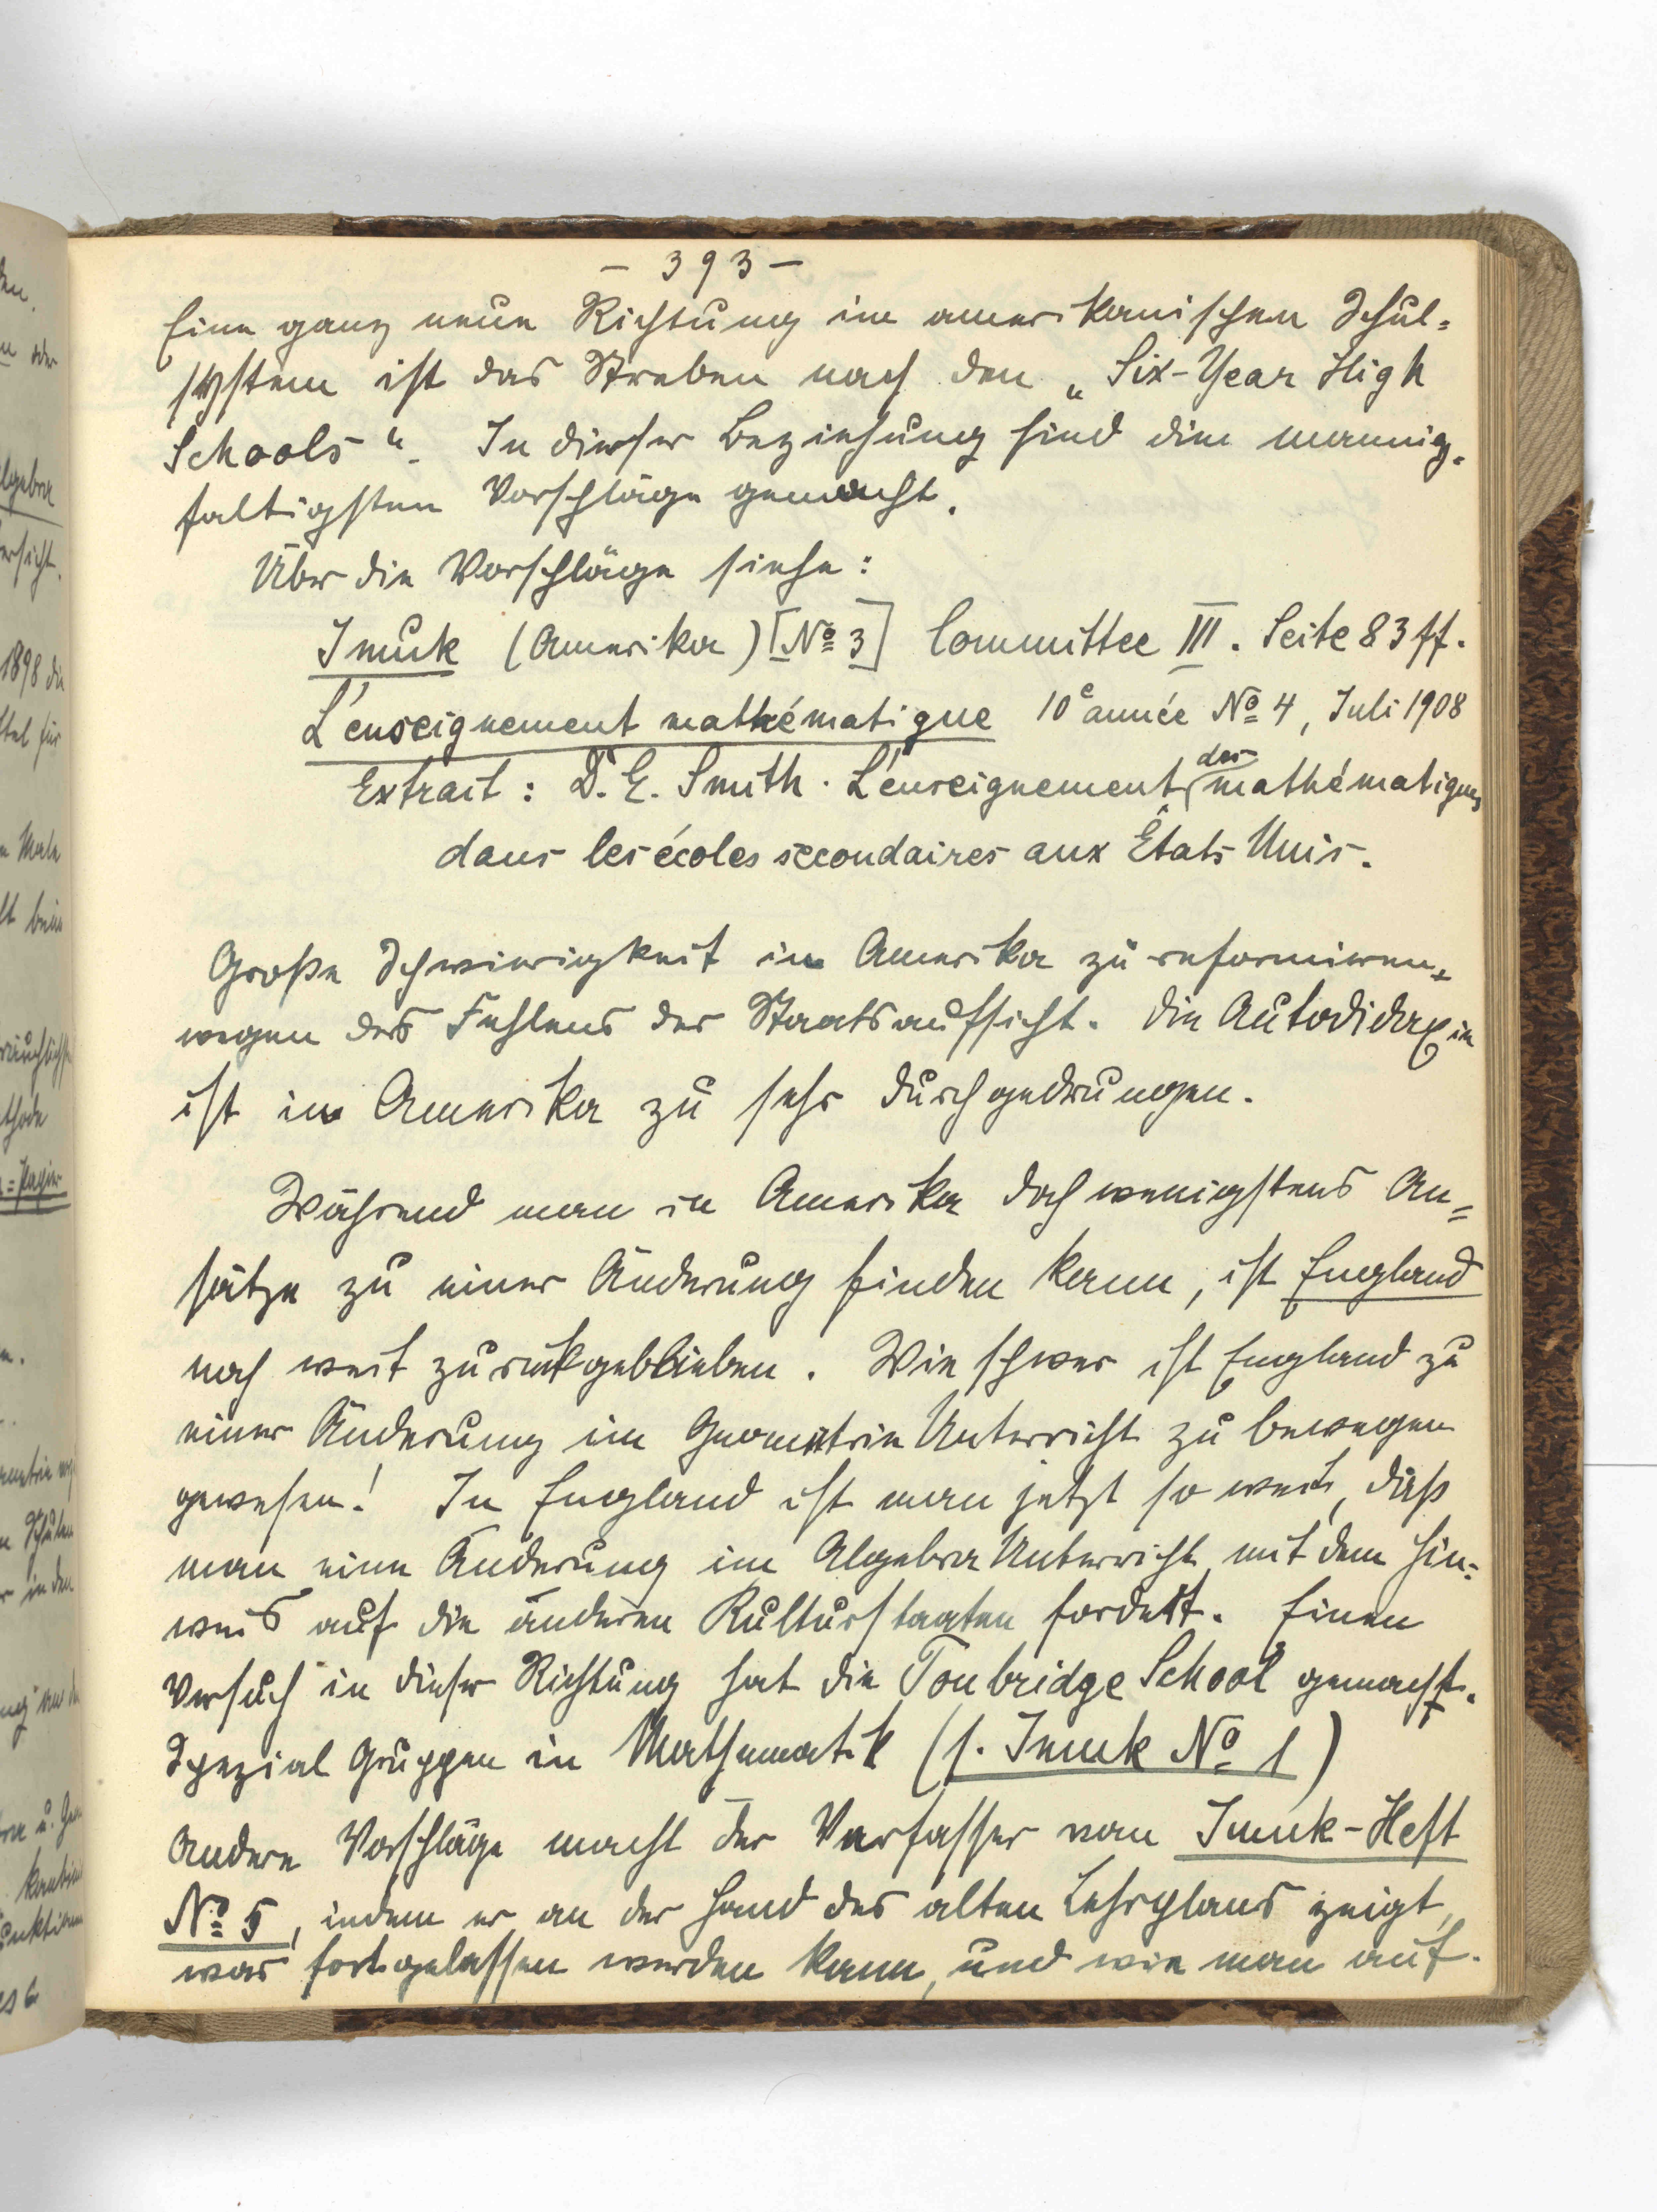 - 393 -
Eine ganz neue Richtung im amerikanischen Schul=
system ist das Streben nach den „Six-Year High
Schools“. In dieser Beziehung sind die mannig=
faltigsten Vorschläge gemacht.
Über die Vorschläge siehe:
Imuk (Amerika) [No 3] Committee III. Seite 83 ff.
L'enseignement mathématique 10e année No 4, Juli 1908
Extrait: D. E. Smith. L'enseignement des mathématiques
dans les écoles secondaires aux États Unis.
Große Schwierigkeit in Amerika zu reformieren,
wegen des Fehlens der Staatsaufsicht. Die Autodidaxie
ist in Amerika zu sehr durchgedrungen.
Während man in Amerika doch wenigstens An=
sätze zu einer Änderung finden kann, ist England
noch weit zurückgeblieben. Wie schwer ist England zu
einer Änderung im Geometrie Unterricht zu bewegen
gewesen! In England ist man jetzt so weit, daß
man eine Änderung im Algebra Unterricht mit dem Hin=
weis auf die anderen Kulturstaaten fordert. Einen
Versuch in dieser Richtung hat die Tonbridge School gemacht.
Spezial Gruppen in Mathematik (s. Imuk No 1)
Andere Vorschläge macht der Verfasser von Imuk-Heft
No 5, indem er an der Hand des alten Lehrplans zeigt,
was fortgelassen werden kann, und wie man auf